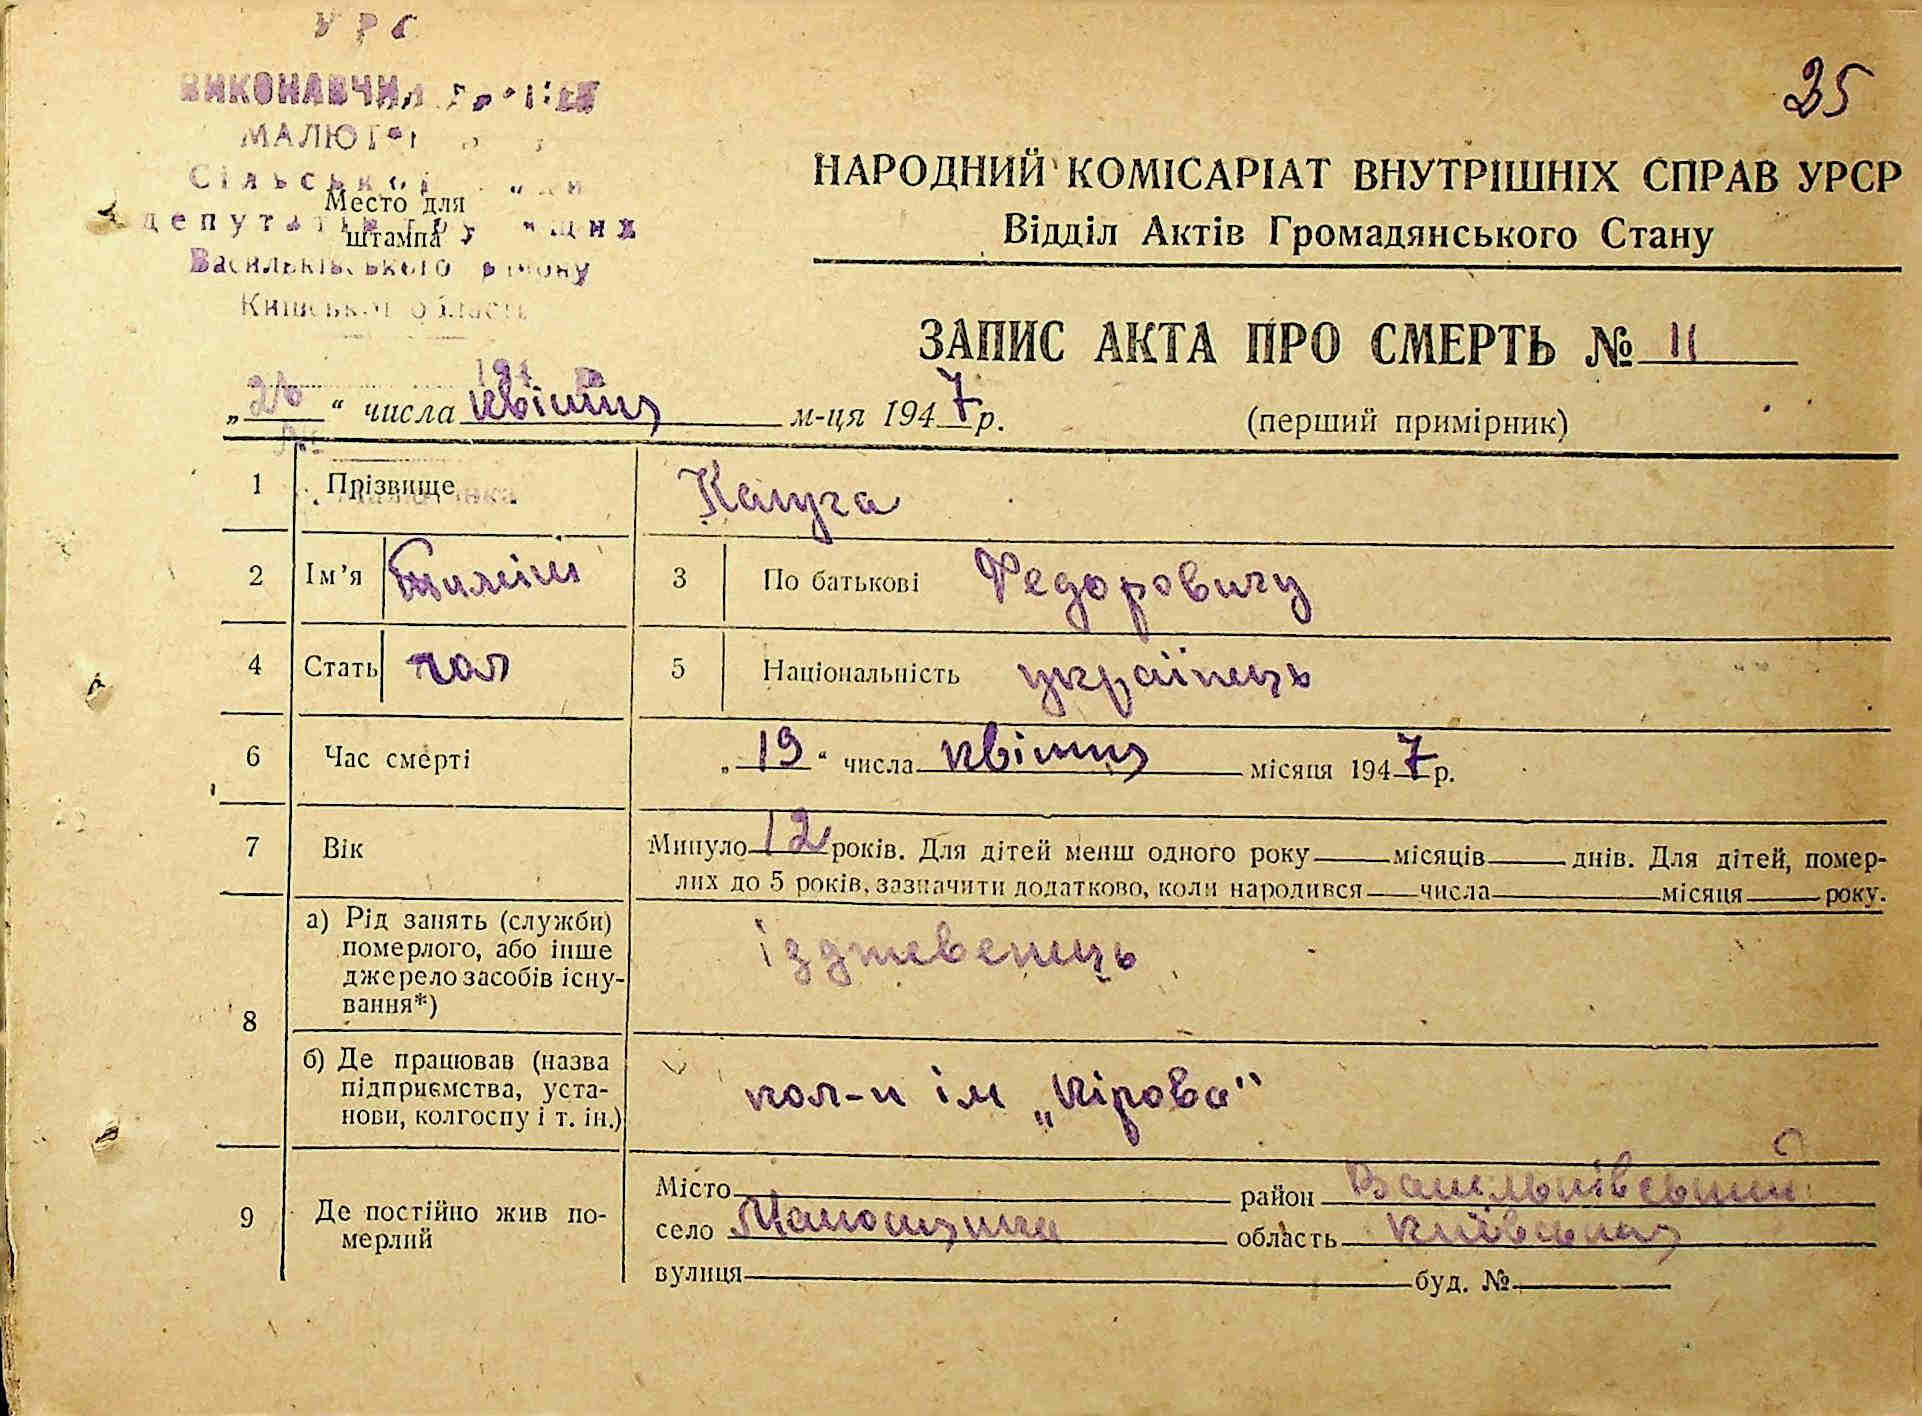 УРС
ВИКОНАВЧИЙ
Сільської
Место для
штампа
депутатів трудящих
Васильківського району
Київської області
25
НАРОДНИЙ КОМІСАРІАТ ВНУТРІШНІХ СПРАВ УРСР
Відділ Актів Громадянського Стану
ЗАПИС АКТА ПРО СМЕРТЬ № 11
(перший примірник)
„ “ числа квітня м-ця 1947 р.
1 Прізвище Калуга
2 Ім’я 3 По батькові Федоровичу
4 Стать чол 5 Національність українець
6 Час смерті „19“ числа квітня місяця 1947 р.
7 Вік Минуло 12 років. Для дітей менш одного року місяців днів. Для дітей, помер-
лих до 5 років, зазначити додатково, коли народився числа місяця року.
8 а) Рід занять (служби)
померлого, або інше
джерело засобів існу-
вання*)
іздтевенець
б) Де працював (назва
підприємства, уста-
нови, колгоспу і т. ін.)
кол-п ім „Кірова“
9 Де постійно жив по-
мерлий
Місто район Васильківський
село область Київська
вулиця буд. №